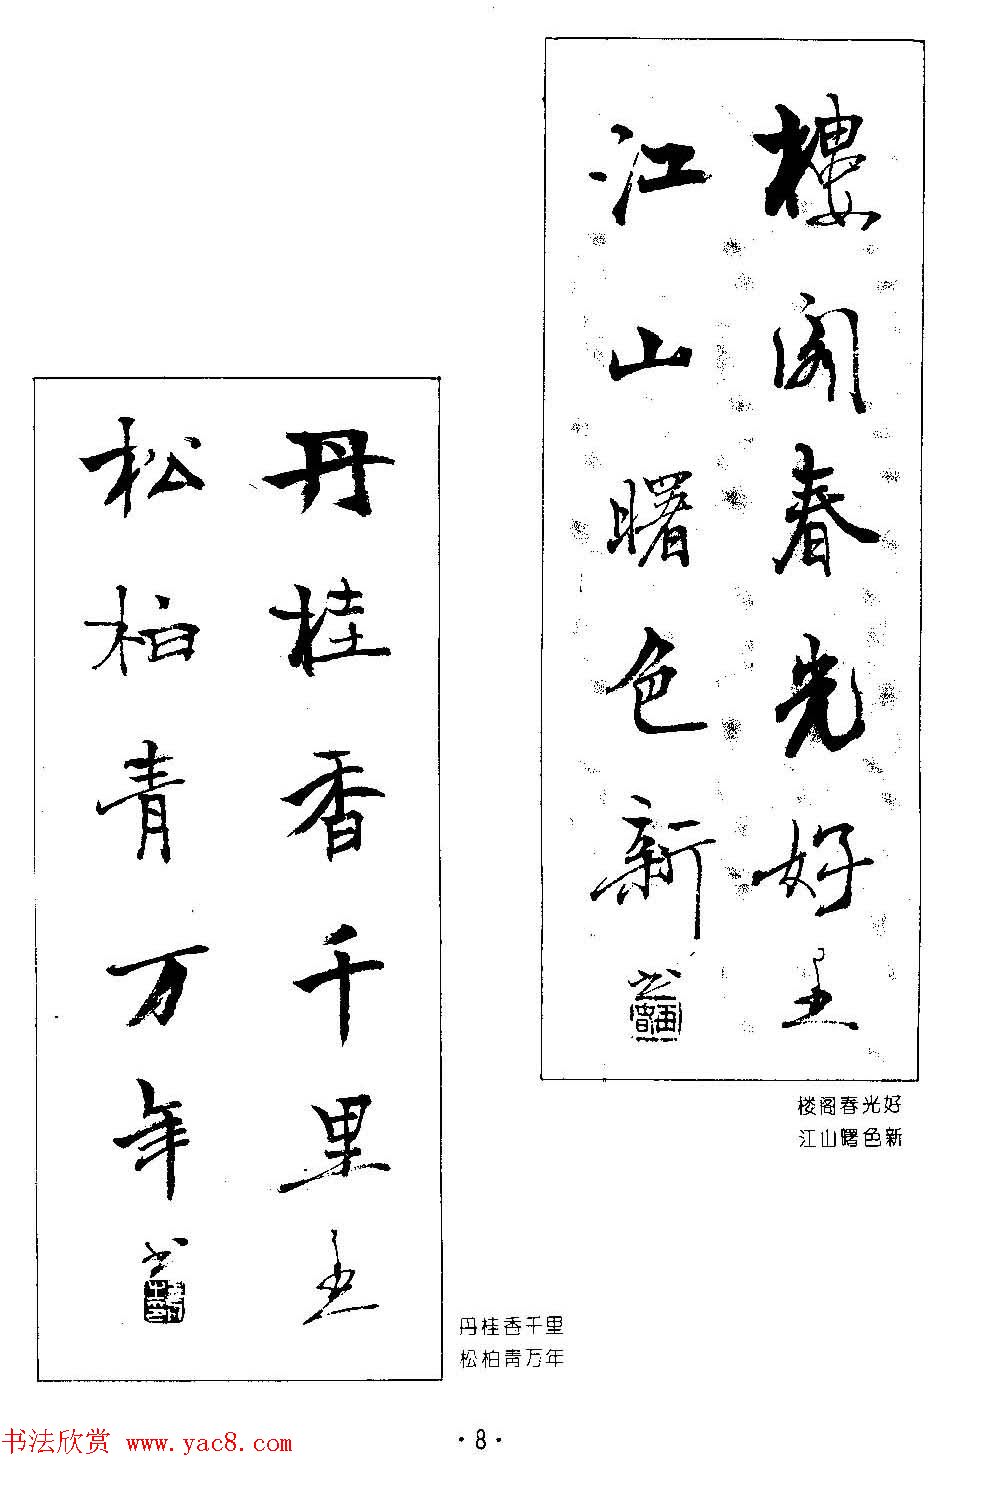 樓阁春光好
江山曙色新
书
楼阁春光好
江山曙色新
丹桂香千里
松柏青万年
书
丹桂香千里
松柏青万年
·8·
书法欣赏 www.yac8.com